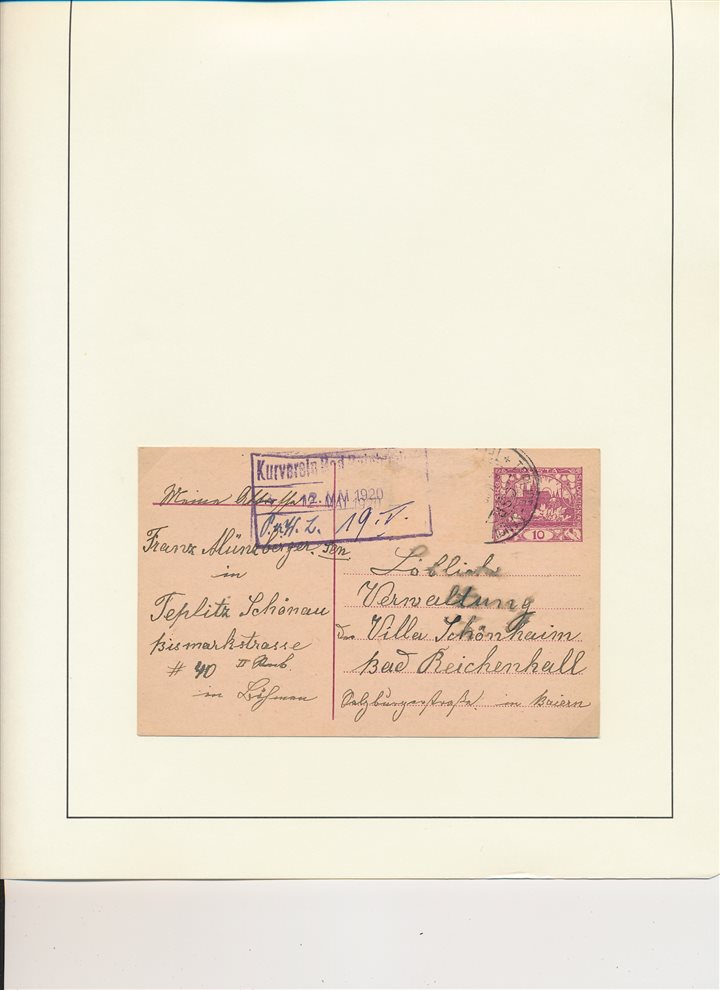 Kurverein Bad
12. MAI 1920
19. V.
10
Meine
Franz Münzberger. sen.
in
Teplitz Schönau
Bismarkstrasse
# 40 II
in Böhmen
Löbliche
Verwaltung
der Villa Schönheim
Bad Reichenhall
Salzburgerstraße in Baiern